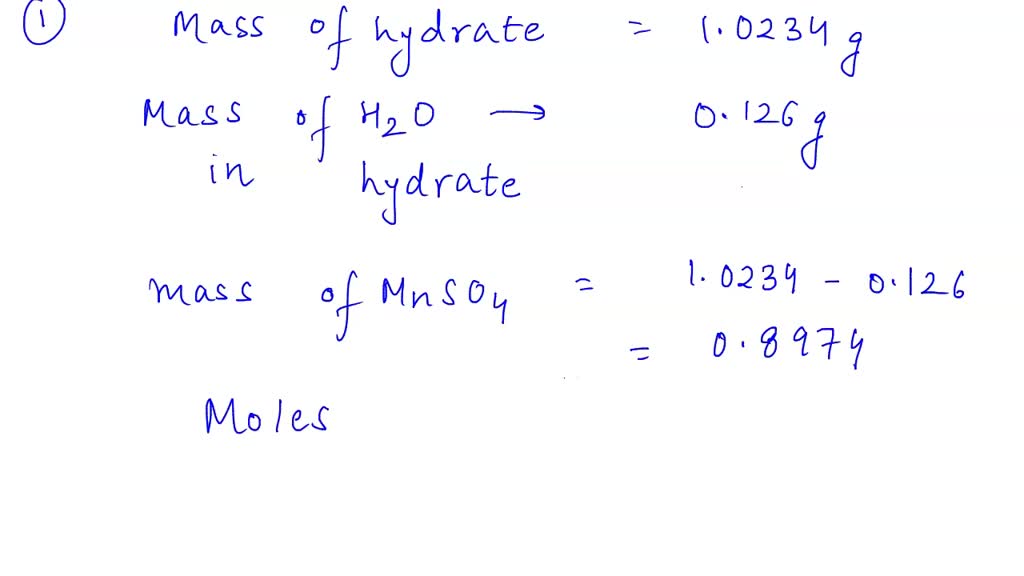 ① Mass of hydrate = 1.0234 g
Mass of H2O → 0.126 g
in hydrate
mass of MnSO4 = 1.0234 - 0.126
= 0.8974
Moles